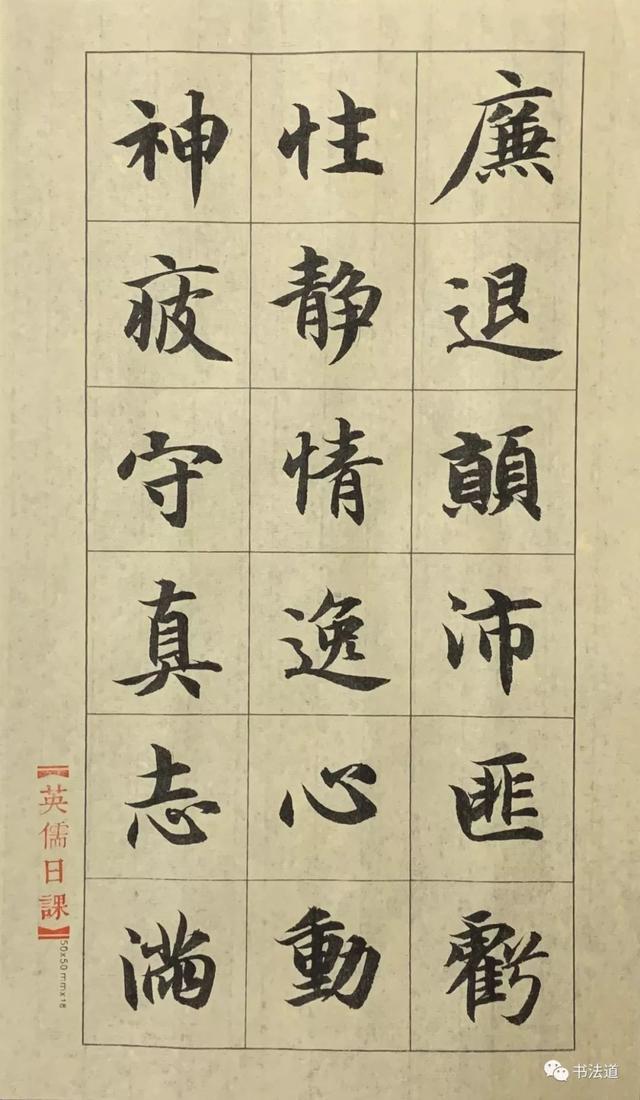 廉退顛沛匪虧
性静情逸心動
神疲守真志滿
【英儒日課】
50x50mmx18
书法道